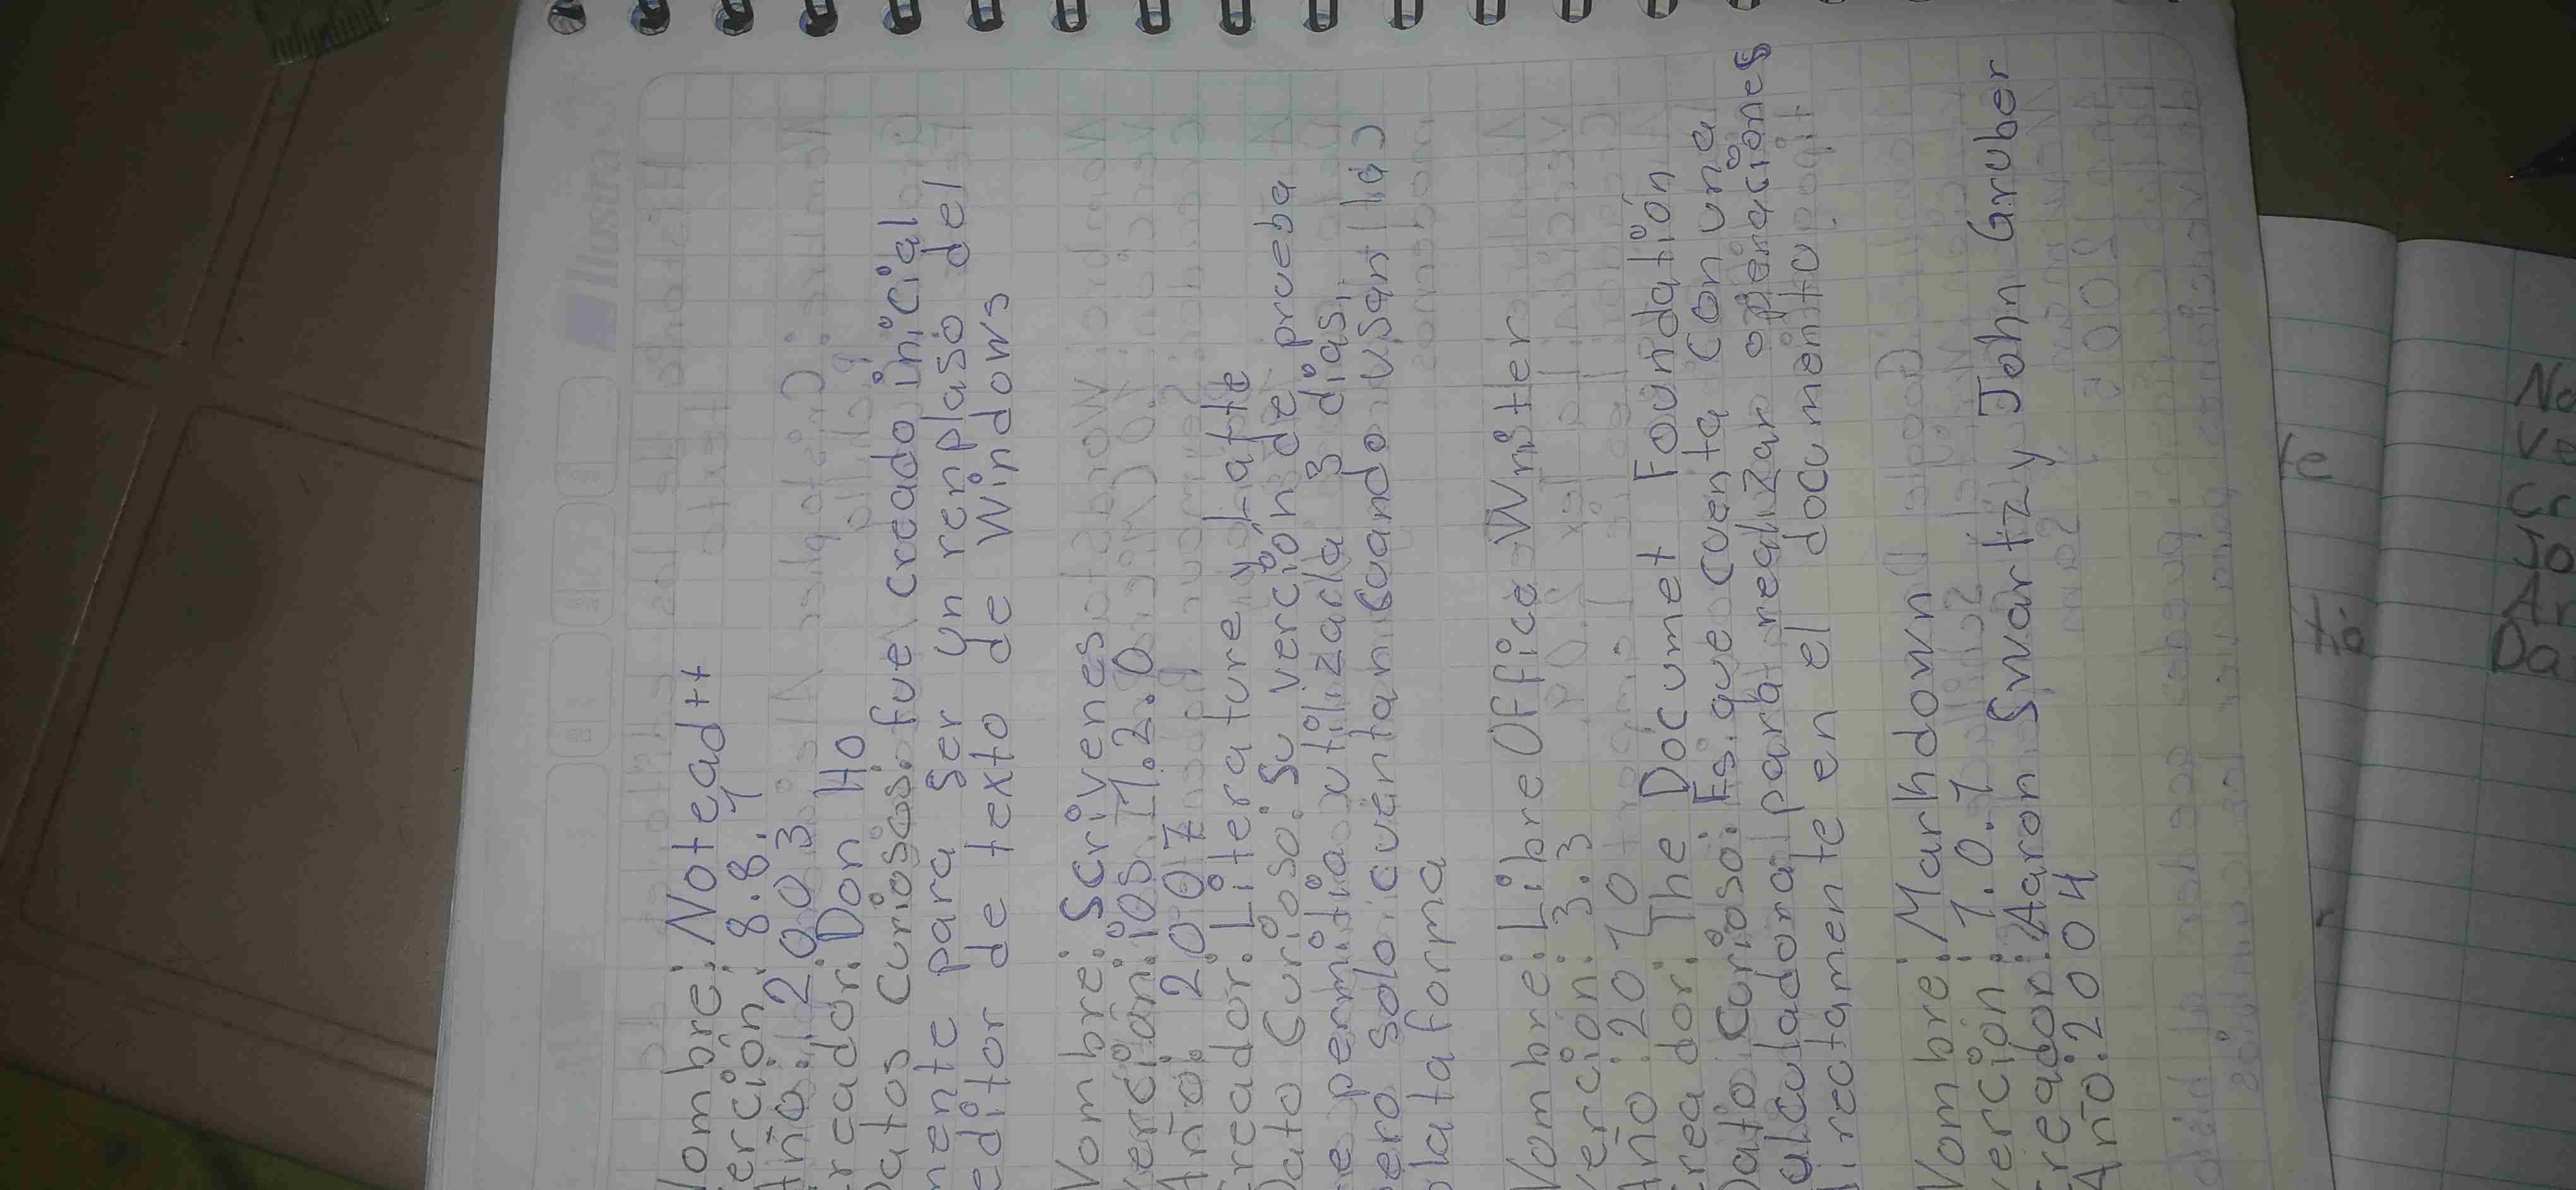 Nombre: Notead++
Verción: 8.8.1
Año: 2003
Creador: Don HO
Datos Curiosos: fue creado inicial
mente para ser yn renplaso del
editor de texto de Windows
Nombre: Scrivenes
Verción: ios 11.2.0
Año: 2007
Creador: Literature y Latte
Dato Curioso: Su verción de prueba
ne permitia utilizarla 3 dias,
pero solo cuentan cuando usan la
plataforma
Nombre: Libre Office Writer
Verción: 3.3
Año: 2010
Creador: The Documet Foundatión
Dato curioso: Es que cuenta con una
calculadora para realizar operaciones
directamente en el documento
Nombre: Markdown
Verción: 1.0.1
Creador: Aaron Swartz y John Gruber
Año: 2004
Ilustra
te
to
No
Ve
Cr
Jo
Añ
Da